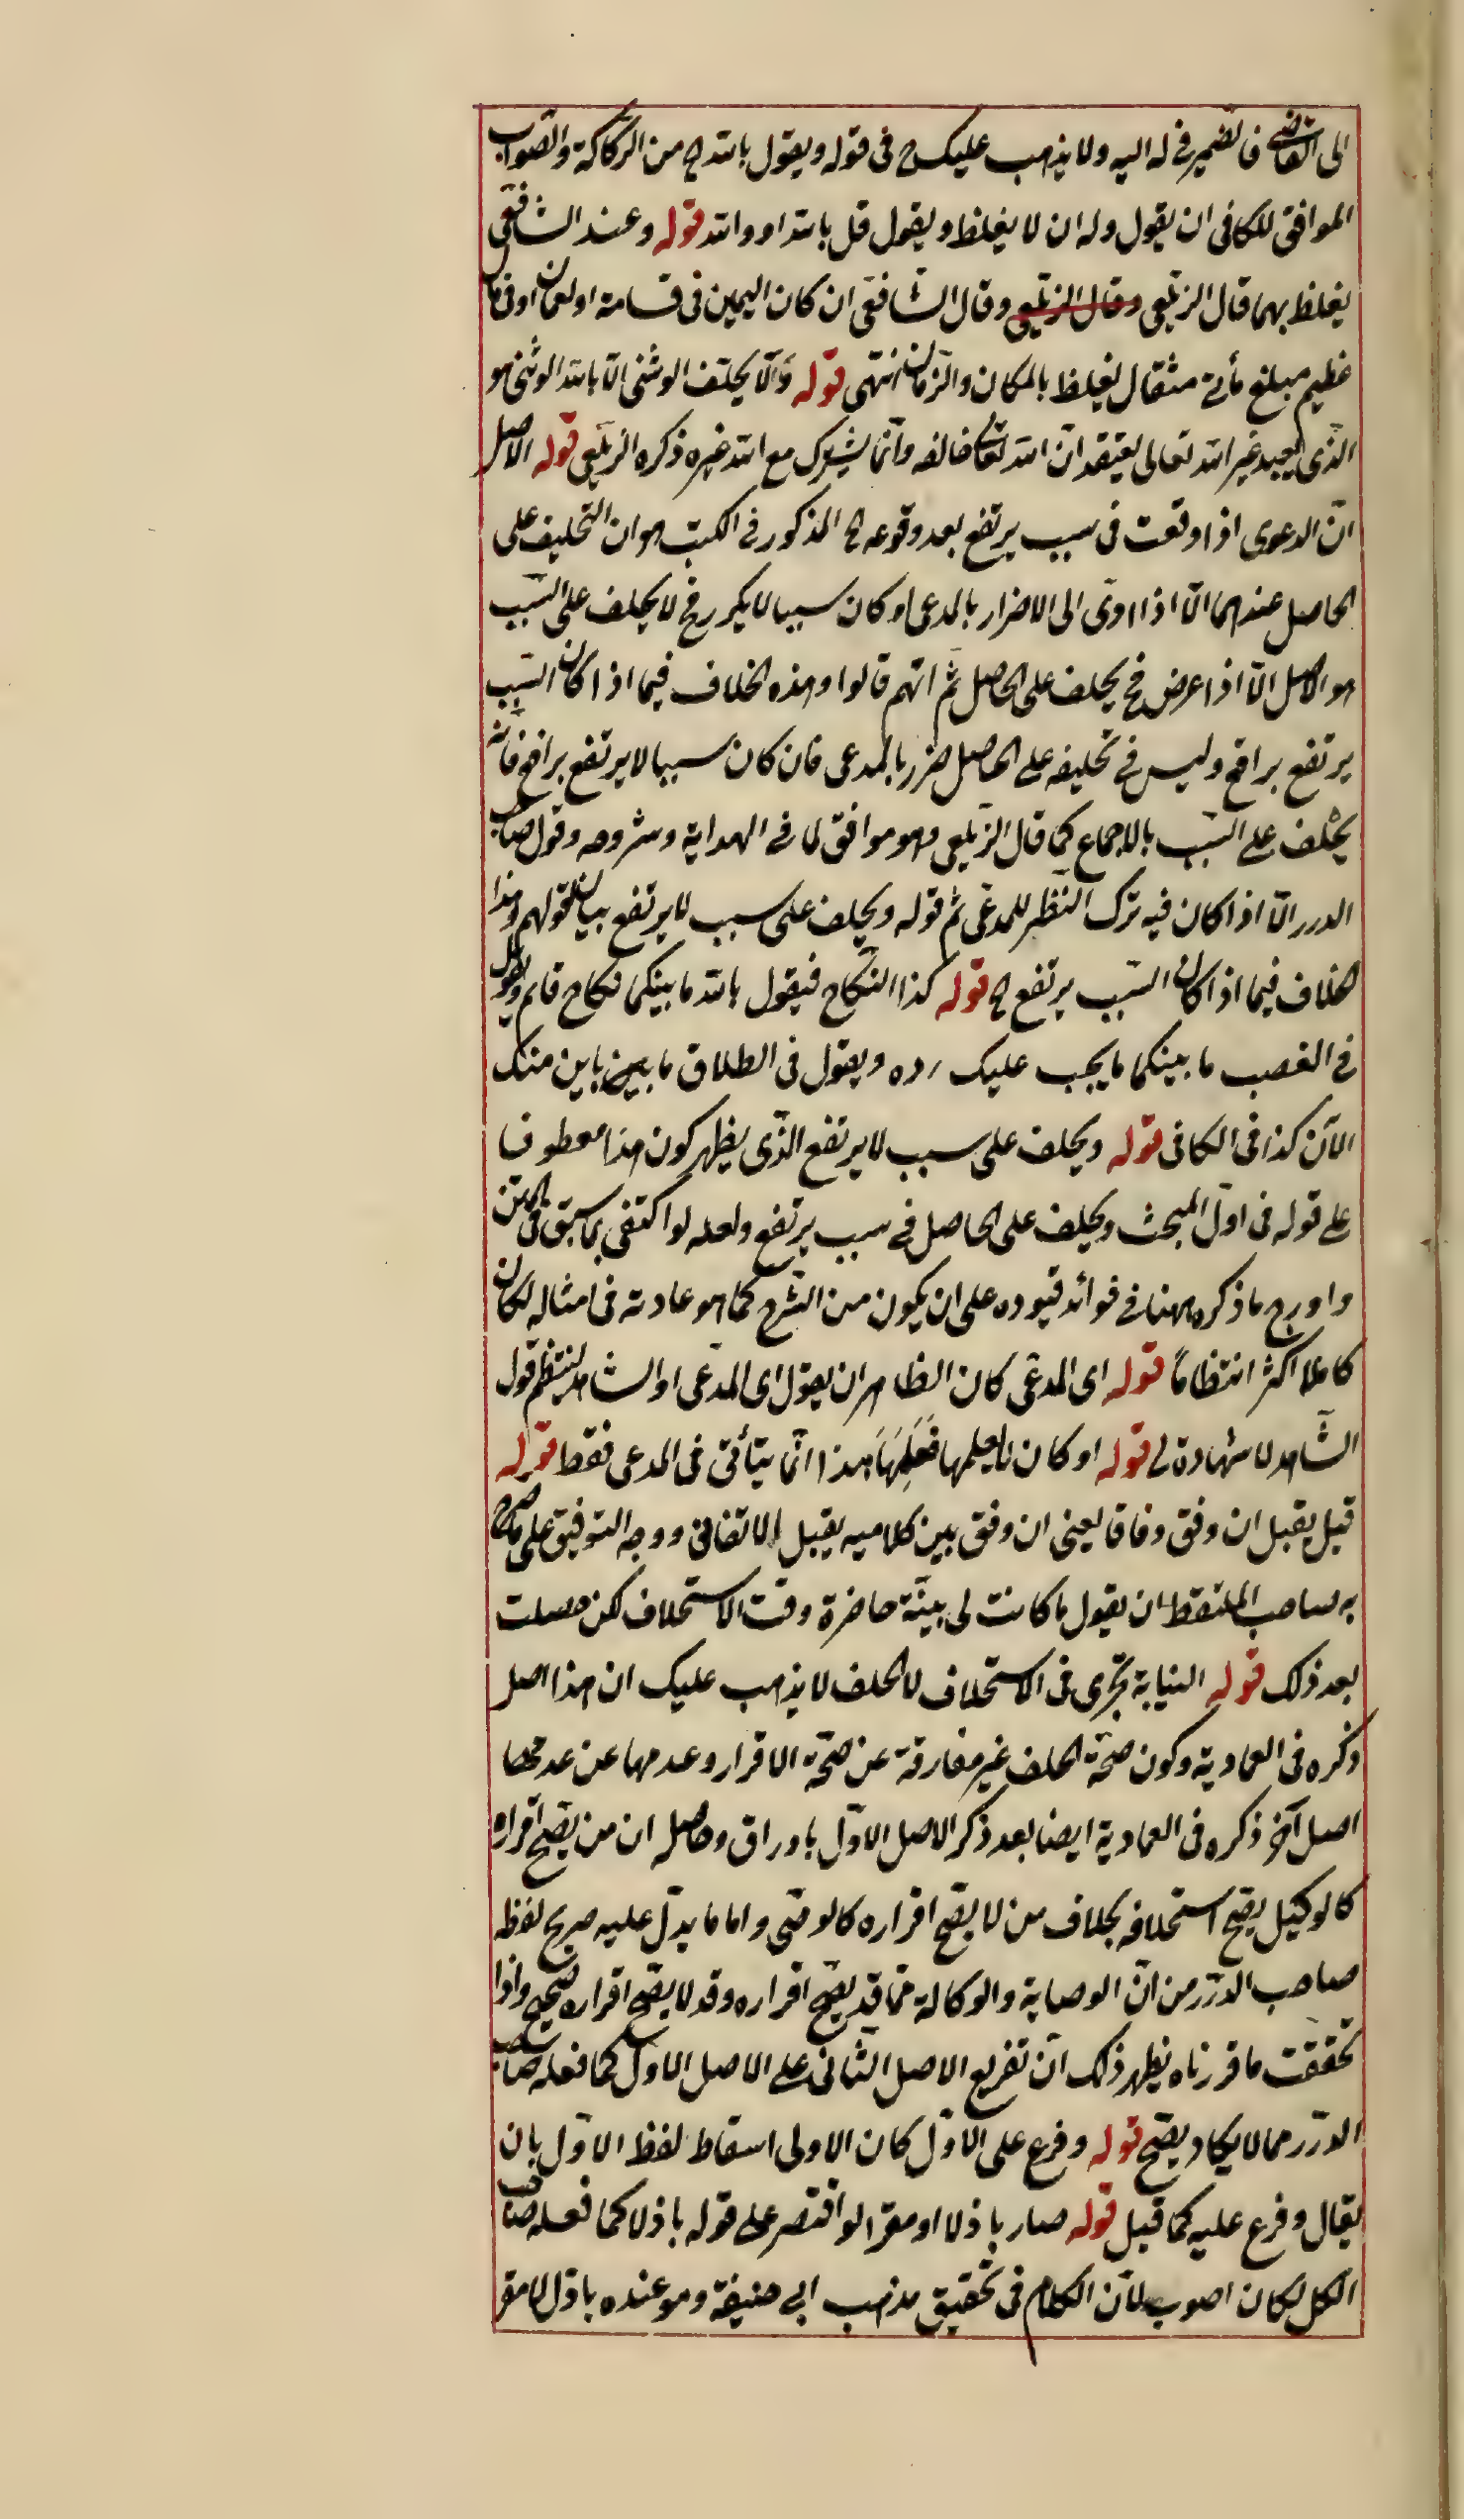 الى القاضى فالضمير فى له اليه ولا يذهب عليك ح فى قوله ويقول بالله ح من الركاكة والصواب
الموافق للكافى ان يقول وله ان لا يغلظ ويقول قل بالله او والله قوله وعند الشافعى
يغلظ بهما قال الزيلعى وقال الزيلعى وقال الشافعى ان كان اليمين فى قسامة او لعان او فى مال
عظيم مبلغ مأية مثقال يغلظ بالمكان والزمان انتهى قوله والا يحلف الوثنى الا بالله الوثنى هو
الذى يعبد غير الله تعالى يعتقد ان الله تعالى خالقه وانما يشرك مع الله غيره ذكره الزيلعى قوله الاصل
ان الدعوى اذا وقعت فى سبب يرتفع بعد وقوعه ح المذكور فى الكتب هو ان التحليف على
الحاصل عندهما الا اذا ادى الى الاضرار بالمدعى او كان سببا لا يكرر فح لا يحلف على السبب
هو الاصل الا اذا عرض فح يحلف على الحاصل ثم انهم قالوا وهذه الخلاف فيما اذا كان السبب
يرتفع برافع وليس فى تحليفه على الحاصل ضرر بالمدعى فان كان سببا لا يرتفع برافع فانه
يحلف على السبب بالاجماع كما قال الزيلعى وهو موافق لما فى الهداية وشروحه وقول صاحب
الدرر الا اذا كان فيه ترك النظر للمدعى ثم قوله ويحلف على سبب لا يرتفع بيان لقولهم وهذا
الخلاف فيما اذا كان السبب يرتفع ح قوله كذا النكاح فيقول بالله ما بينكما نكاح قايم ويقول
فى الغصب ما بينكما ما يجب عليك رده ويقول فى الطلاق ما بين باين منك
الآن كذا فى الكافى قوله ويحلف على سبب لا يرتفع الذى يظهر كون هذا معطوفا
على قوله فى اول المبحث ويحلف على الحاصل فى سبب يرتفع ولعله لو اكتفى بما سبق فى المتن
واورج ما ذكره ههنا فى فوائد قيوده على ان يكون من الشرح كما هو عادته فى امثاله لكان
كاملا اكثر انتظاما قوله اى المدعى كان الظاهر ان يقول اى المدعى او الشاهد لينتظم قول
الشاهد لا شهادة لى قوله او كان لا يعلمها فعلمها هذا انما يتأتى فى المدعى فقط قوله
قيل يقبل ان وفق وفاقا يعنى ان وفق بين كلاميه يقبل الاتفاق ووجه التوفيق على ما صرح
به صاحب الملتقط ان يقول ما كانت لى بينة حاضرة وقت الاستحلاف لكن حصلت
بعد ذلك قوله النيابة تجرى فى الاستحلاف لا الحلف لا يذهب عليك ان هذا اصل
ذكره فى العمادية وكون صحة الحلف غير مفارقة عن صحة الاقرار وعدمها عن عدمها
اصل آخر ذكره فى العمادية ايضا بعد ذكر الاصل الاول باوراق وحاصله ان من يصح اقراره
كالوكيل يصح استحلافه بخلاف من لا يصح اقراره كالوصى واما ما يدل عليه صريح لفظه
صاحب الدرر من ان الوصاية والوكالة مما قد يصح اقراره وقد لا يصح اقراره صحيح واذا
تحققت ما قررناه يظهر ذلك ان تفريع الاصل الثانى على الاصل الاول كما فعله صاحب
الدرر مما لا يكاد يصح قوله وفرع على الاول كان الاولى اسقاط لفظ الاول بان
يقال وفرع عليه كما قيل قوله صار باذلا او مقرا لو اقتصر على قوله باذلا كما فعله صاحب
الكل لكان اصوب لان الكلام فى تحقيق مذهب ابى حنيفة وهو عنده باذل لا مقر